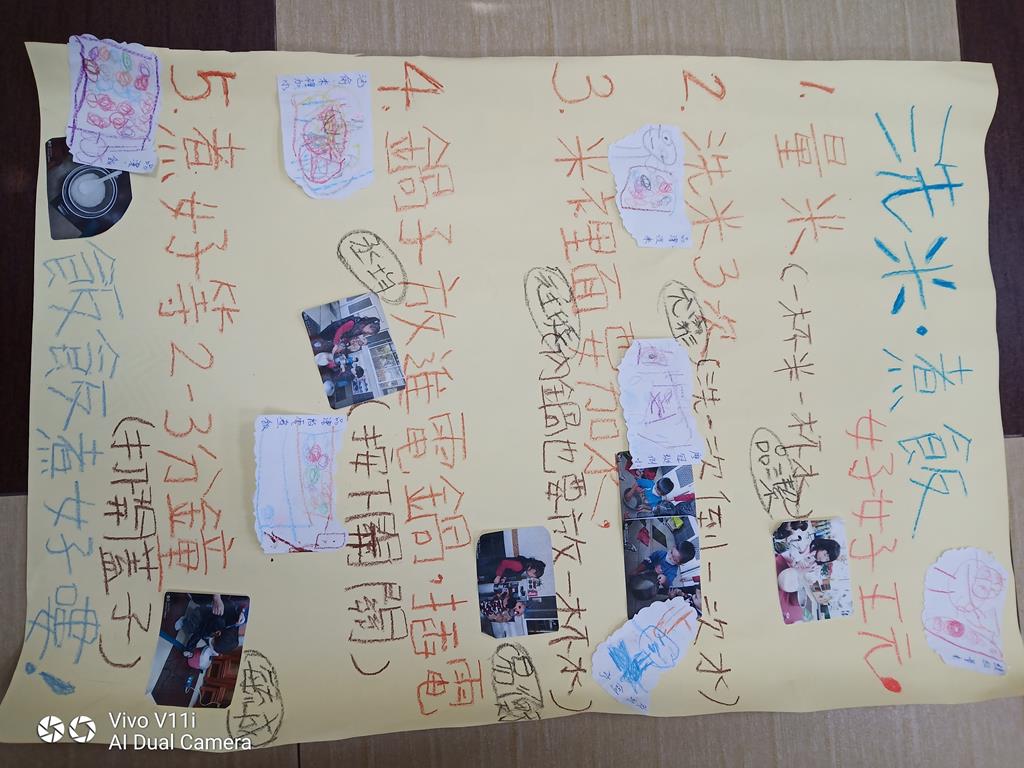 洗米·煮飯
好好玩!
1.量米(一杯米一杯水)
品蓁
2.洗米3次(洗一次倒一次水)
3.米裡面要加水,
(外鍋也要放一杯水)
4.鍋子放進電鍋,插電
(按下開關)
5.煮好等2-3分鐘
(打開蓋子)
飯飯煮好嘍!
Vivo V11i
AI Dual Camera